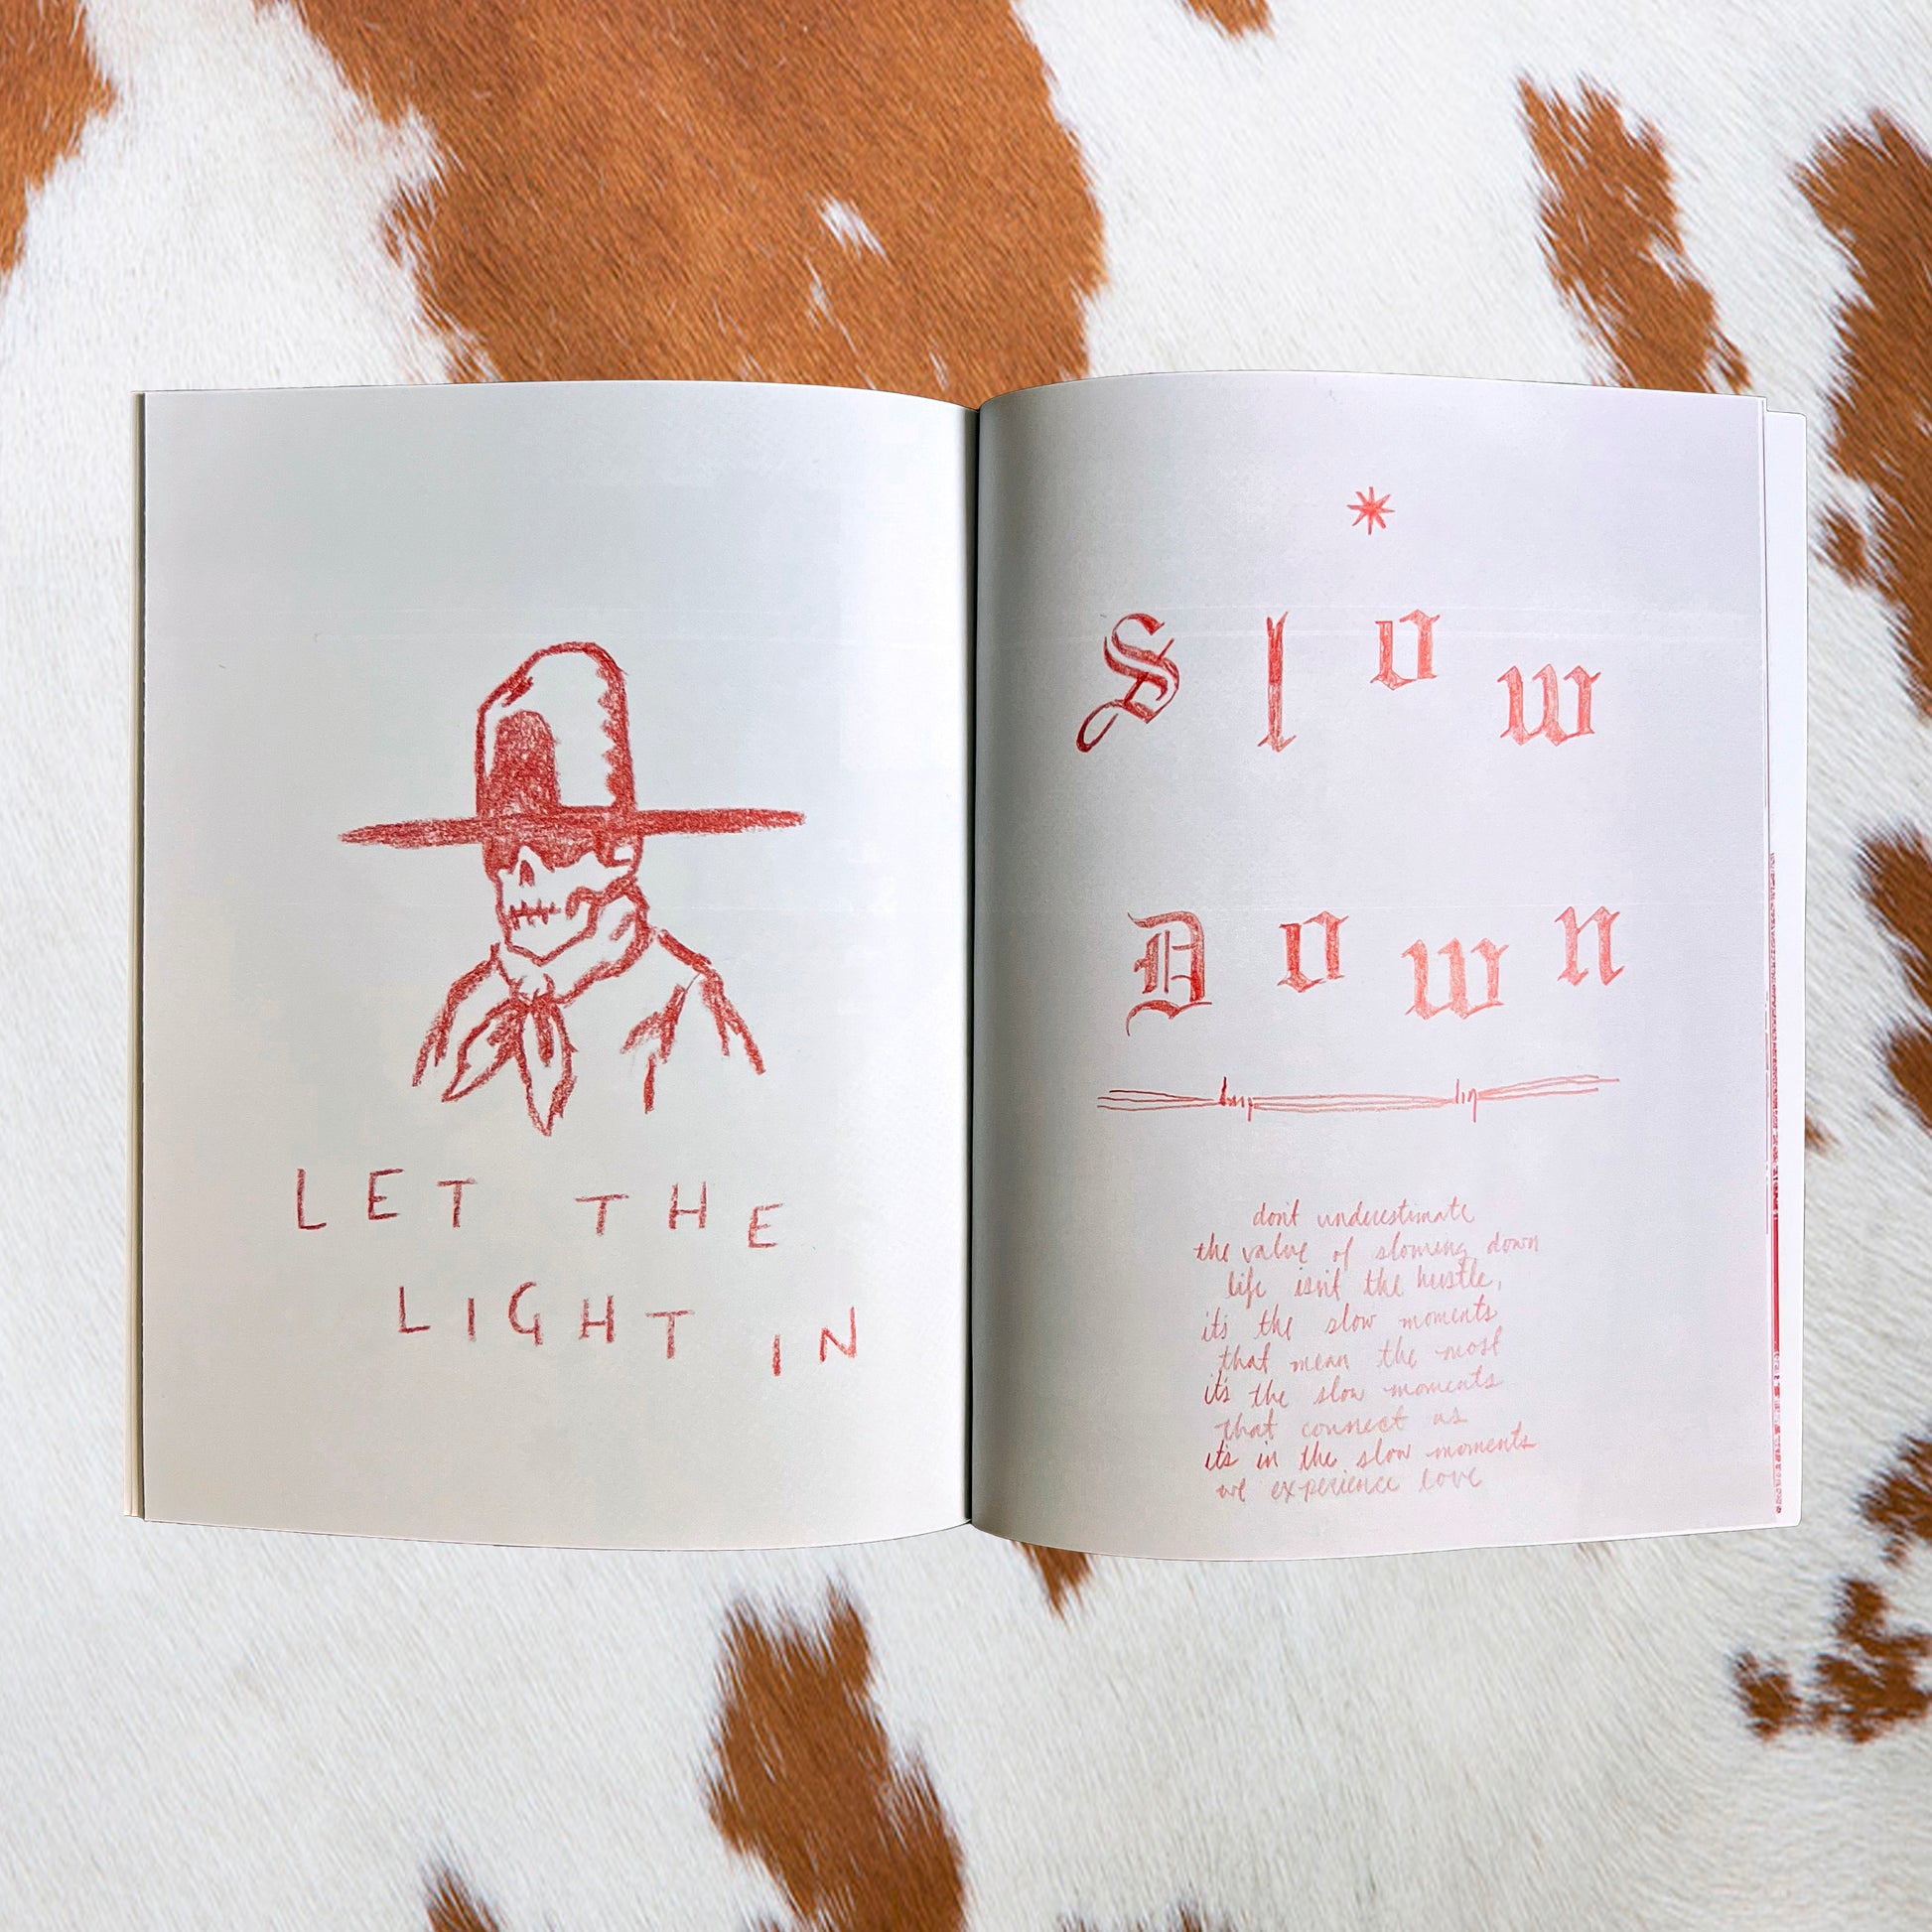 LET THE
LIGHT IN
Slow
Down
don't underestimate
the value of slowing down
life isn't the hustle,
it's the slow moments
that mean the most
it's the slow moments
that connect us
it's in the slow moments
we experience love